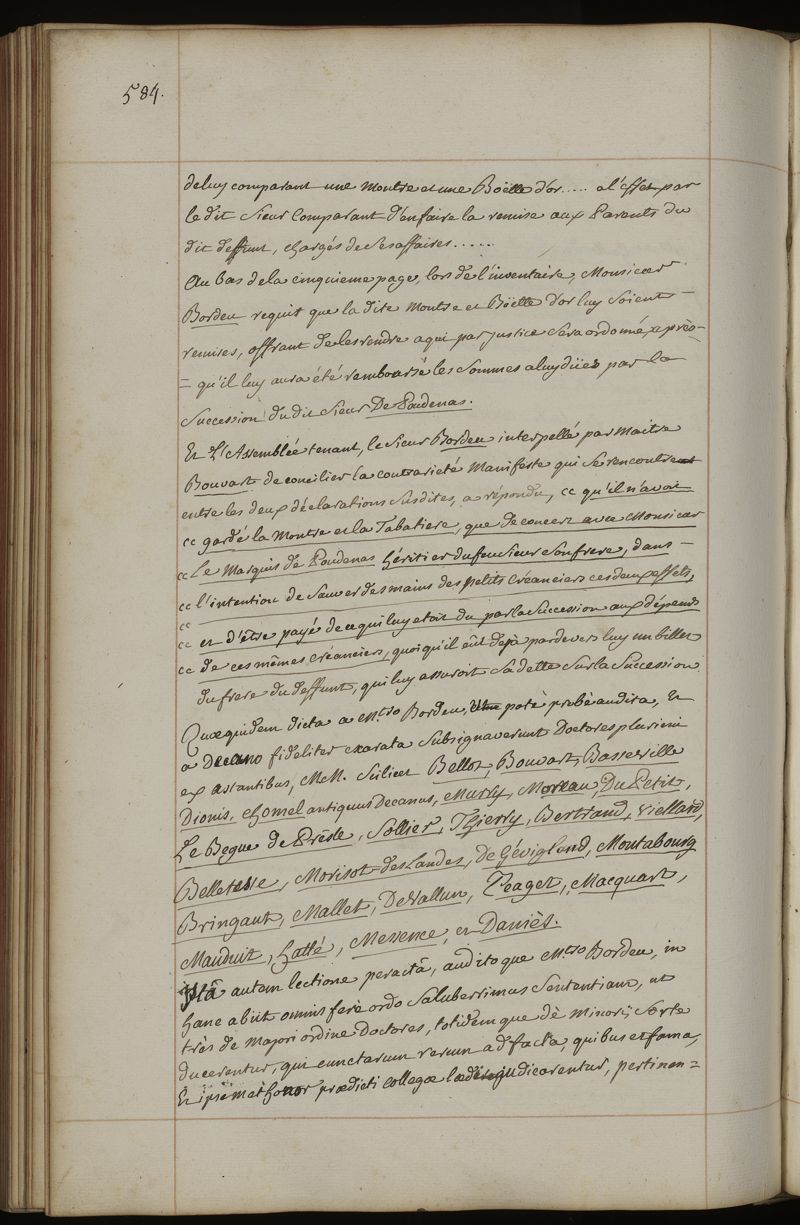 584.
de luy comparant une Montre et une Boëtte d'or..... a l'effet par
le dit Sieur Comparant d'en faire la remise aux Parents du
dit deffunt, chargés de Ses affaires......
Au bas de la cinquieme page, lors de l'inventaire, Monsieur
Bordeu requit que la dite Montre et Böette d'or luy Soient
remises, offrant de les rendre a qui par justice Sera ordonné, après
= qu'il luy aura été remboursé les Sommes a luy düës par la
Succession du dit Sieur De Poudenas.
Et L'Assemblée tenant, le Sieur Bordeu interpellé par Maitre
Bouvart de concilier la contrarieté Manifeste qui Se rencontre
entre les deux déclarations Susdites, a répondu, cc qu'il n'avoit
cc gardé la Montre et la Tabatiere, que de concert avec Monsieur
cc Le Marquis de Poudenas héritier du feu Sieur Son frere, dans
cc l'intention de Sauver des mains des petits Créanciers ces deux effets,
cc
cc et d'être payé de ce qui luy etoit du par la Succession aux dépends
cc de ces mêmes Créanciers, quoiqu'il eût deja par devers luy un billet
du frere du deffunt, qui luy assuroit Sa dette Sur la Succession
Quæ quidem dicta a M.tro Bordeu, potè probè audita, et
a Decano fideliter exarata Subsignaverunt Doctores plurimi
ex astantibus, M.M. Scilicet Bellot, Bouvart, Basseville
Dionis, Chomel antiquus Decanus, Murry, Moreau, Du Petit,
Le Begue de Presle, Sollier, Thierry, Bertrand, Viellard,
Belleteste, Morisot deslandes, De Gévigland, Montabourg
Bringaut, Mallet, De Vallun, Peaget, Macquart,
Mauduit, Hallé, Messence, et Daniès.
Istâ autem lectione peractâ, auditoque M.tro Bordeu, in
hanc abiit omnis ferè ordo Saluberrimus Sententiam, ut
très de Majori ordine Doctores, totidemque dè Minorij Sorte
ducerentur, qui cunctarum rerum ad facta, quibus et fama,
Et ipsemet honor prædicti Collegæ lædi judicarentur, pertinen=